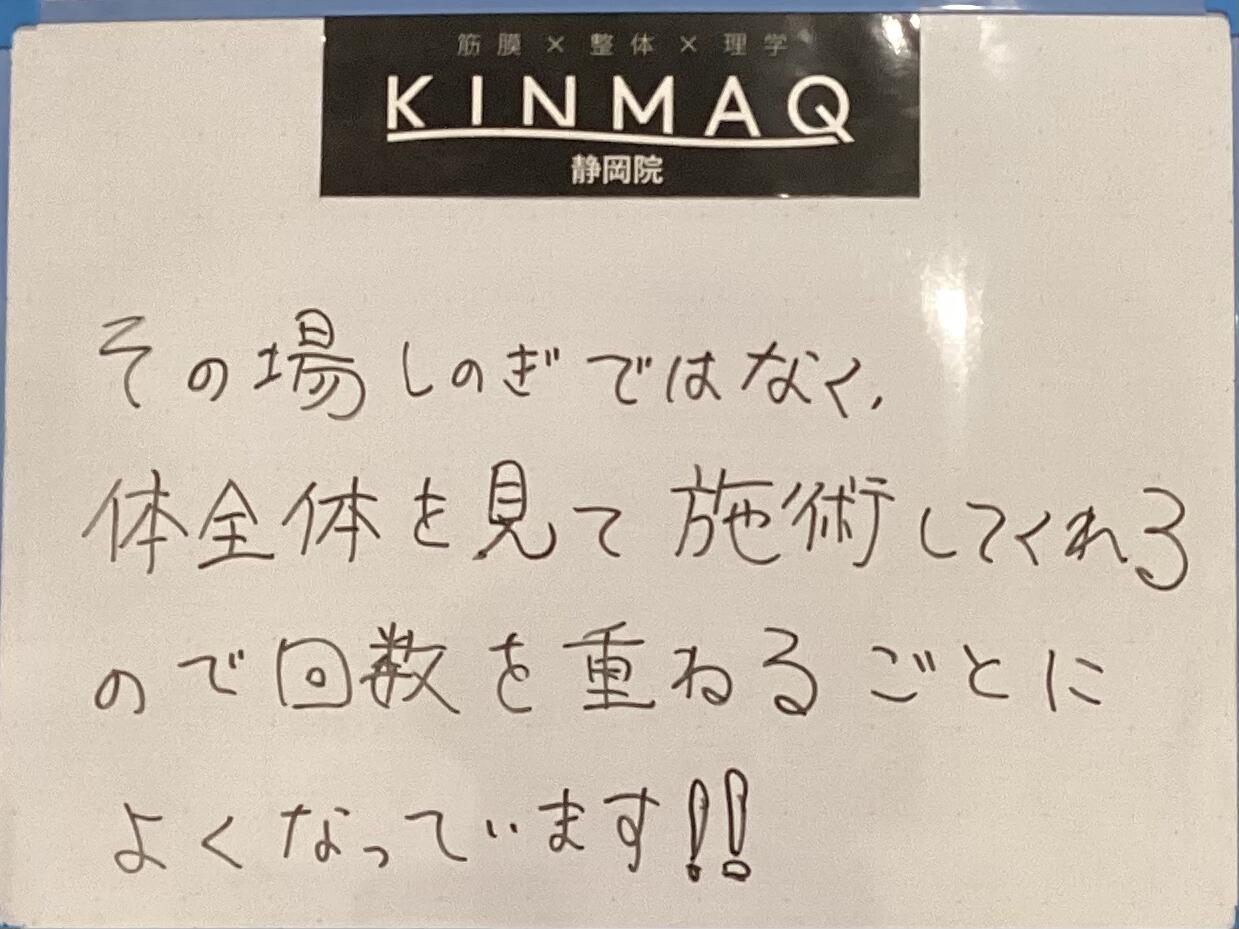 筋膜×整体×理学
KINMAQ
静岡院
その場しのぎではなく、
体全体を見て施術してくれる
ので回数を重ねるごとに
よくなっています!!